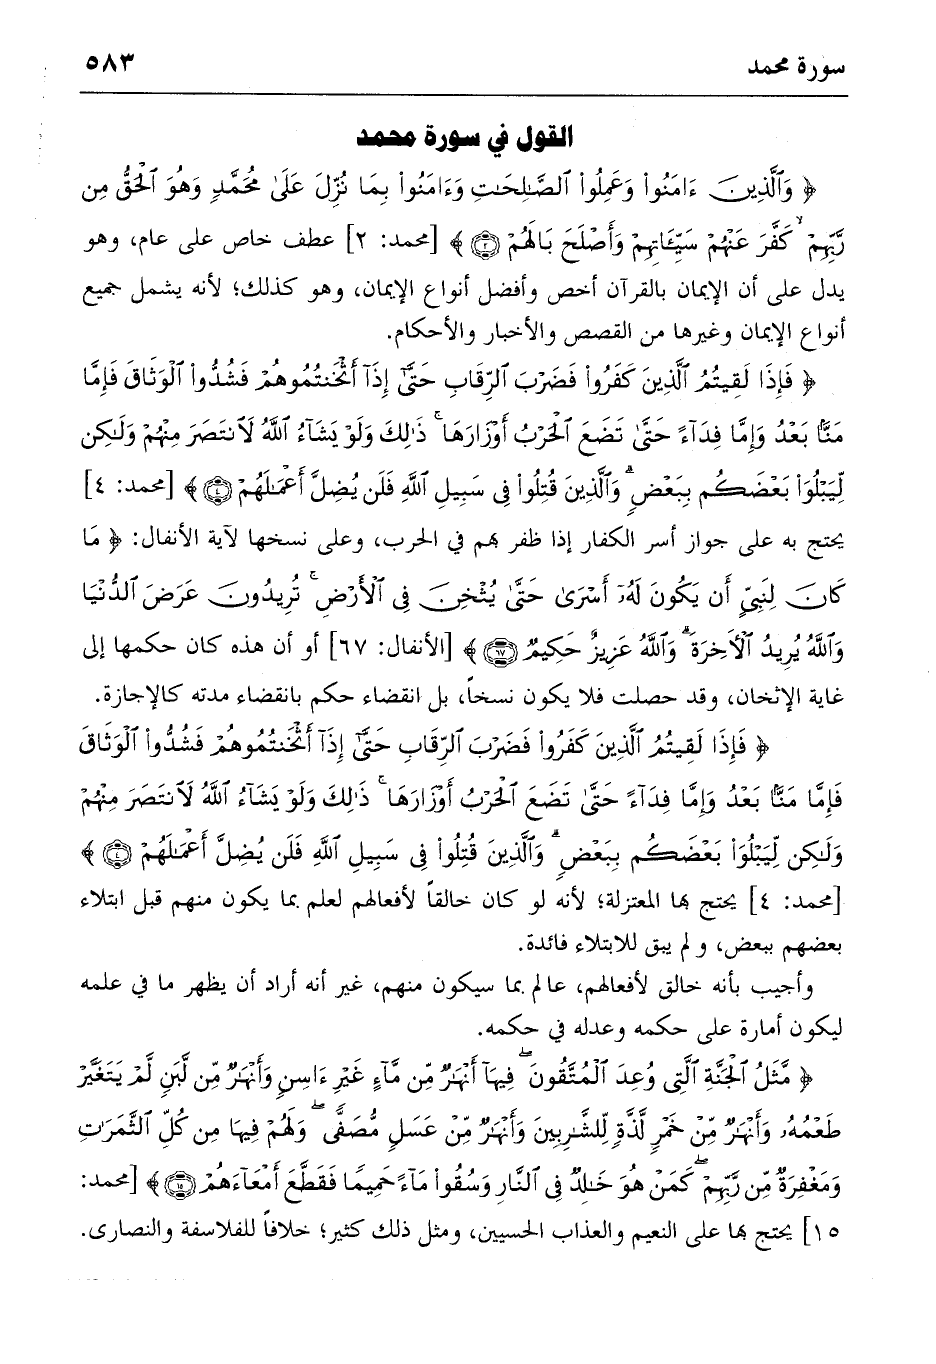 سورة محمد ٥٨٣
القول في سورة محمد
﴿ وَٱلَّذِينَ ءَامَنُوا۟ وَعَمِلُوا۟ ٱلصَّـٰلِحَـٰتِ وَءَامَنُوا۟ بِمَا نُزِّلَ عَلَىٰ مُحَمَّدٍ وَهُوَ ٱلْحَقُّ مِن
رَّبِّهِمْ ۙ كَفَّرَ عَنْهُمْ سَيِّـَٔاتِهِمْ وَأَصْلَحَ بَالَهُمْ ٢ ﴾ [محمد: ٢] عطف خاص على عام، وهو
يدل على أن الإيمان بالقرآن أخص وأفضل أنواع الإيمان، وهو كذلك؛ لأنه يشمل جميع
أنواع الإيمان وغيرها من القصص والأخبار والأحكام.
﴿ فَإِذَا لَقِيتُمُ ٱلَّذِينَ كَفَرُوا۟ فَضَرْبَ ٱلرِّقَابِ حَتَّىٰٓ إِذَآ أَثْخَنتُمُوهُمْ فَشُدُّوا۟ ٱلْوَثَاقَ فَإِمَّا
مَنًّۢا بَعْدُ وَإِمَّا فِدَآءً حَتَّىٰ تَضَعَ ٱلْحَرْبُ أَوْزَارَهَا ۚ ذَٰلِكَ وَلَوْ يَشَآءُ ٱللَّهُ لَٱنتَصَرَ مِنْهُمْ وَلَـٰكِن
لِّيَبْلُوَا۟ بَعْضَكُم بِبَعْضٍ ۗ وَٱلَّذِينَ قُتِلُوا۟ فِى سَبِيلِ ٱللَّهِ فَلَن يُضِلَّ أَعْمَـٰلَهُمْ ٤ ﴾ [محمد: ٤]
يحتج به على جواز أسر الكفار إذا ظفر بهم في الحرب، وعلى نسخها لآية الأنفال: ﴿ مَا
كَانَ لِنَبِىٍّ أَن يَكُونَ لَهُۥٓ أَسْرَىٰ حَتَّىٰ يُثْخِنَ فِى ٱلْأَرْضِ ۚ تُرِيدُونَ عَرَضَ ٱلدُّنْيَا
وَٱللَّهُ يُرِيدُ ٱلْـَٔاخِرَةَ ۗ وَٱللَّهُ عَزِيزٌ حَكِيمٌ ٦٧ ﴾ [الأنفال: ٦٧] أو أن هذه كان حكمها إلى
غاية الإثخان، وقد حصلت فلا يكون نسخاً، بل انقضاء حكم بانقضاء مدته كالإجازة.
﴿ فَإِذَا لَقِيتُمُ ٱلَّذِينَ كَفَرُوا۟ فَضَرْبَ ٱلرِّقَابِ حَتَّىٰٓ إِذَآ أَثْخَنتُمُوهُمْ فَشُدُّوا۟ ٱلْوَثَاقَ
فَإِمَّا مَنًّۢا بَعْدُ وَإِمَّا فِدَآءً حَتَّىٰ تَضَعَ ٱلْحَرْبُ أَوْزَارَهَا ۚ ذَٰلِكَ وَلَوْ يَشَآءُ ٱللَّهُ لَٱنتَصَرَ مِنْهُمْ
وَلَـٰكِن لِّيَبْلُوَا۟ بَعْضَكُم بِبَعْضٍ ۗ وَٱلَّذِينَ قُتِلُوا۟ فِى سَبِيلِ ٱللَّهِ فَلَن يُضِلَّ أَعْمَـٰلَهُمْ ٤ ﴾
[محمد: ٤] يحتج بها المعتزلة؛ لأنه لو كان خالقاً لأفعالهم لعلم بما يكون منهم قبل ابتلاء
بعضهم ببعض، و لم يبق للابتلاء فائدة.
وأجيب بأنه خالق لأفعالهم، عالم بما سيكون منهم، غير أنه أراد أن يظهر ما في علمه
ليكون أمارة على حكمه وعدله في حكمه.
﴿ مَّثَلُ ٱلْجَنَّةِ ٱلَّتِى وُعِدَ ٱلْمُتَّقُونَ ۖ فِيهَآ أَنْهَـٰرٌ مِّن مَّآءٍ غَيْرِ ءَاسِنٍ وَأَنْهَـٰرٌ مِّن لَّبَنٍ لَّمْ يَتَغَيَّرْ
طَعْمُهُۥ وَأَنْهَـٰرٌ مِّنْ خَمْرٍ لَّذَّةٍ لِّلشَّـٰرِبِينَ وَأَنْهَـٰرٌ مِّنْ عَسَلٍ مُّصَفًّى ۖ وَلَهُمْ فِيهَا مِن كُلِّ ٱلثَّمَرَٰتِ
وَمَغْفِرَةٌ مِّن رَّبِّهِمْ ۖ كَمَنْ هُوَ خَـٰلِدٌ فِى ٱلنَّارِ وَسُقُوا۟ مَآءً حَمِيمًا فَقَطَّعَ أَمْعَآءَهُمْ ١٥ ﴾ [محمد:
١٥] يحتج بها على النعيم والعذاب الحسيين، ومثل ذلك كثير؛ خلافاً للفلاسفة والنصارى.